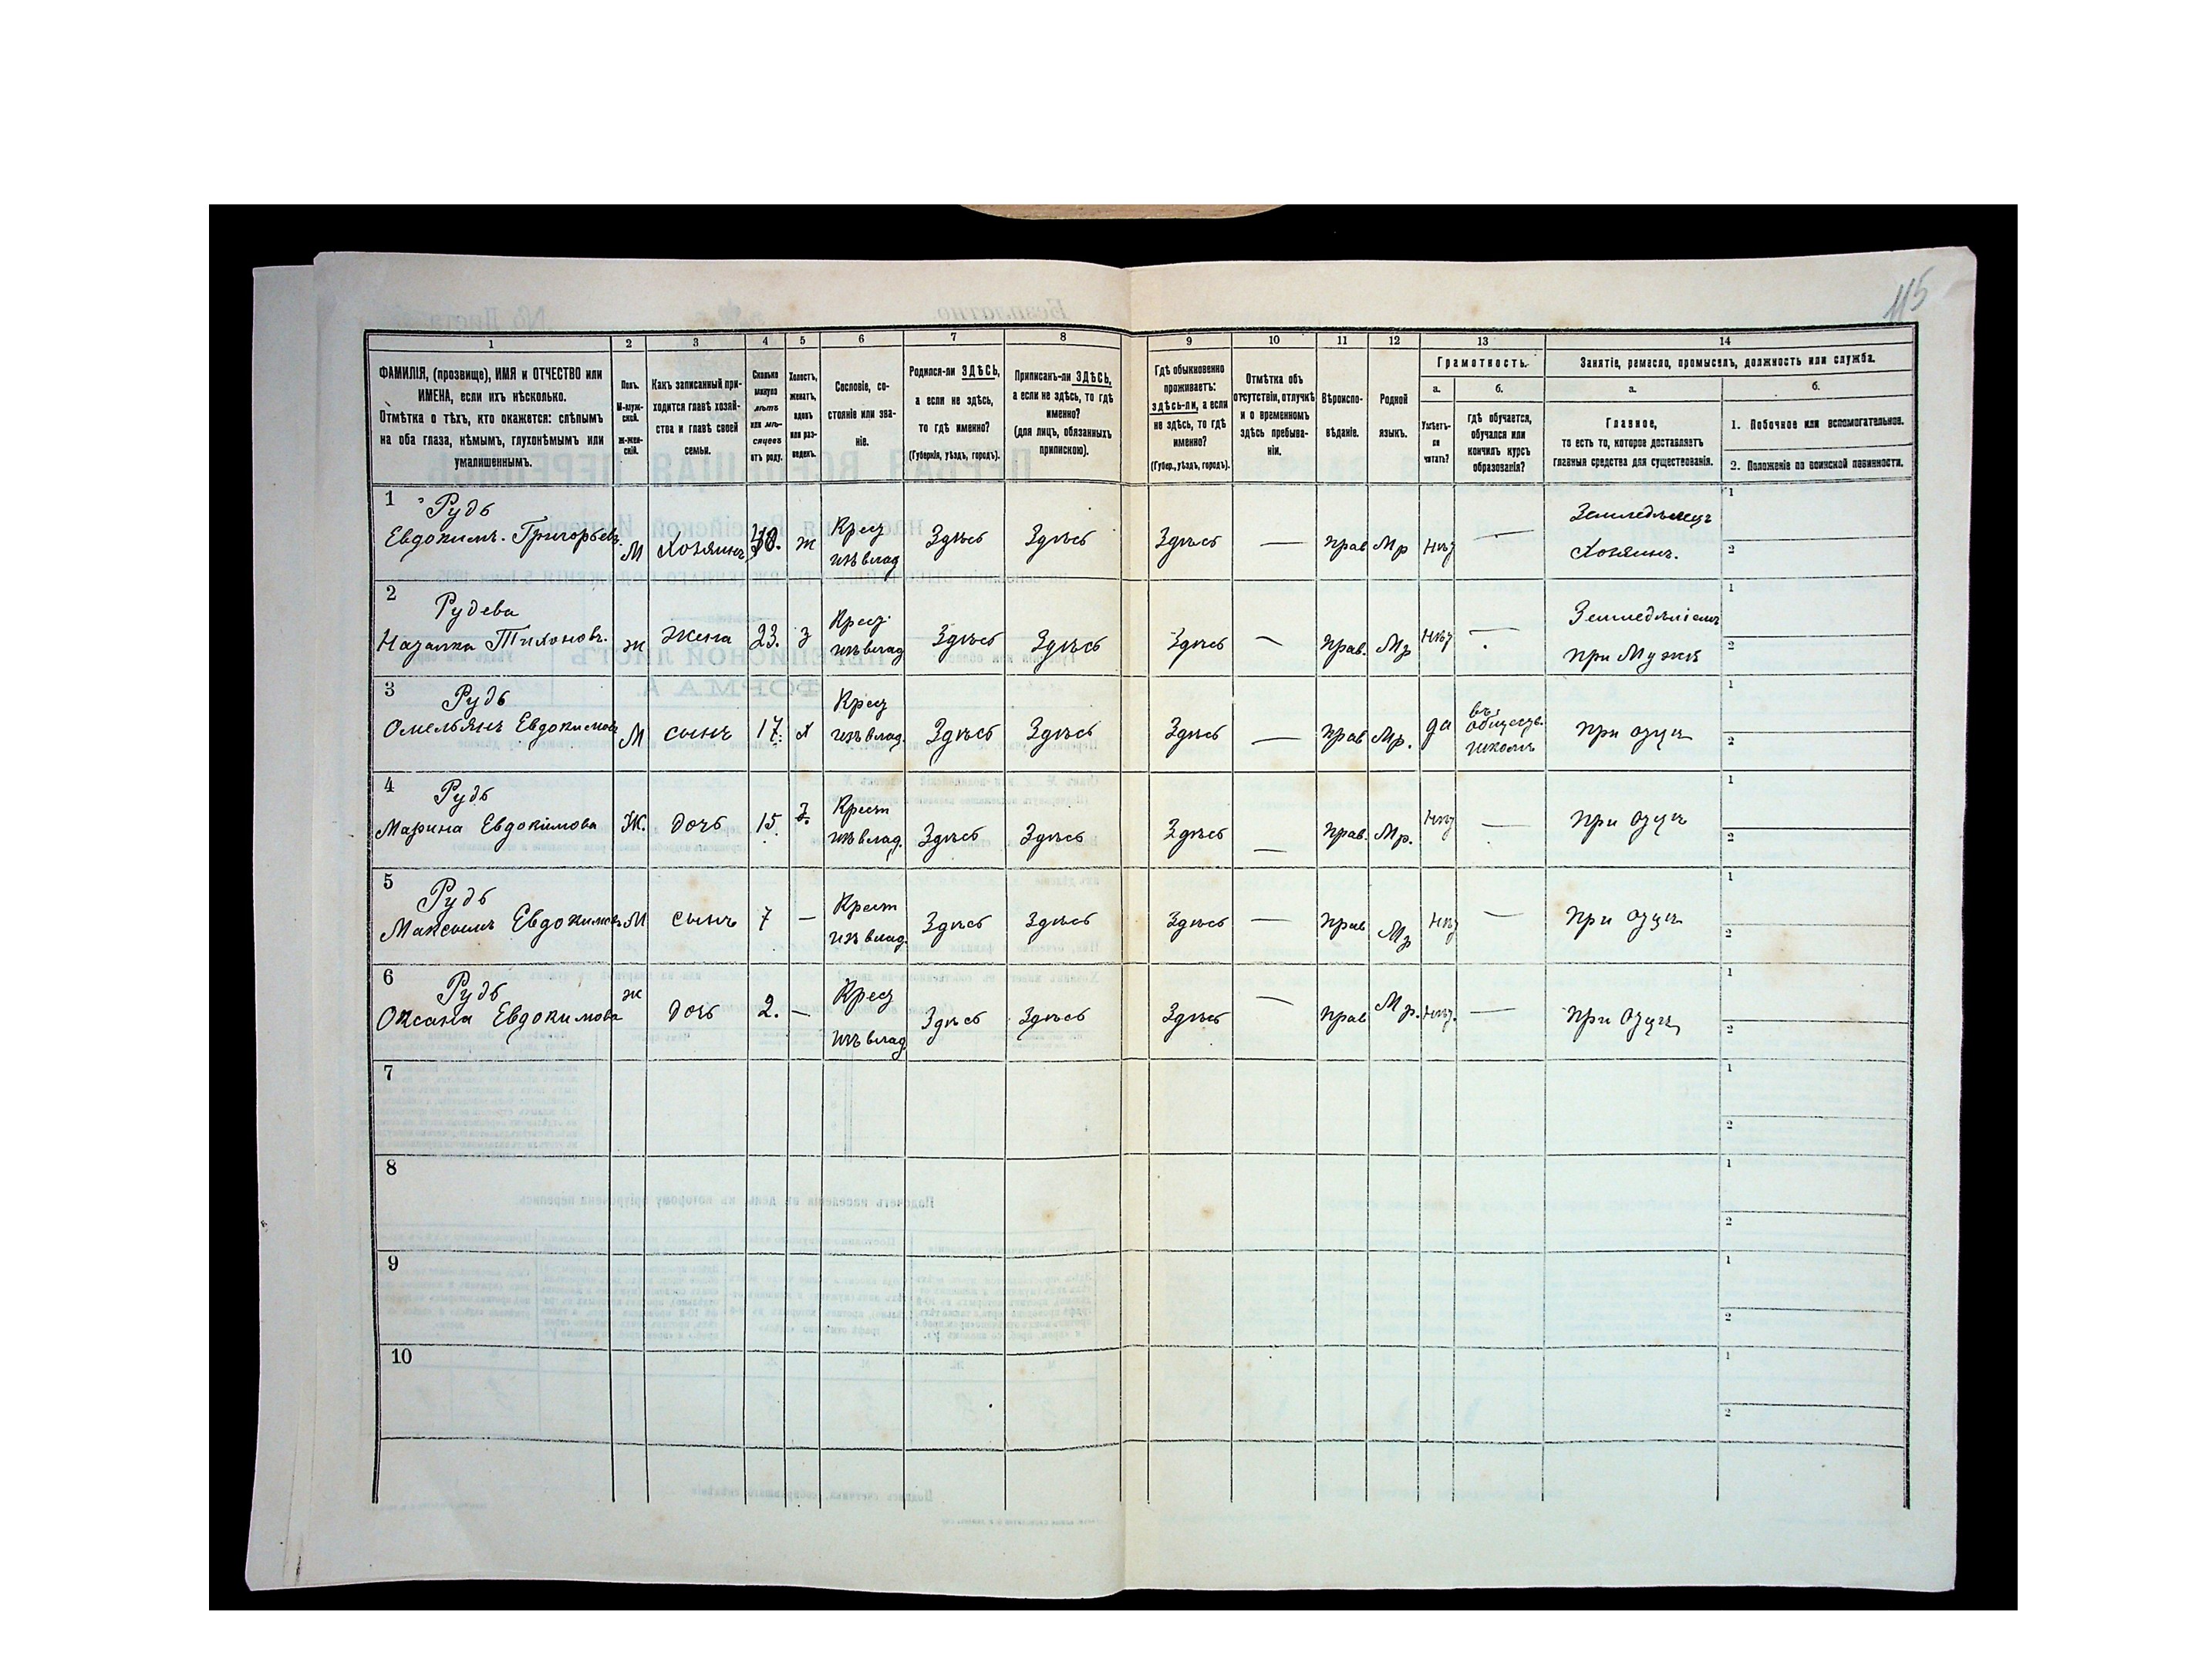 115
1 2 3 4 5 6 7 8 9 10 11 12 13 14
ФАМИЛІЯ, (прозвище), ИМЯ и ОТЧЕСТВО или
ИМЕНА, если ихъ нѣсколько.
Отмѣтка о тѣхъ, кто окажется: слѣпымъ
на оба глаза, нѣмымъ, глухонѣмымъ или
умалишеннымъ.
Полъ.
М-муж-
ской.
Ж-жен-
скій.
Какъ записанный при-
ходится главѣ хозяй-
ства и главѣ своей
семьи.
Сколько
минуло
лѣтъ
или мѣ-
сяцевъ
отъ роду.
Холостъ,
женатъ,
вдовъ
или раз-
веденъ.
Сословіе, со-
стояніе или зва-
ніе.
Родился-ли ЗДѢСЬ,
а если не здѣсь,
то гдѣ именно?
(Губернія, уѣздъ, городъ).
Приписанъ-ли ЗДѢСЬ,
а если не здѣсь, то гдѣ
именно?
(для лицъ, обязанныхъ
припискою).
Гдѣ обыкновенно
проживаетъ:
здѣсь-ли, а если
не здѣсь, то гдѣ
именно?
(Губер., уѣздъ, городъ).
Отмѣтка объ
отсутствіи, отлучкѣ
и о временномъ
здѣсь пребыва-
ніи.
Вѣроиспо-
вѣданіе.
Родной
языкъ.
Грамотность.
а.
Умѣетъ-
ли
читать?
б.
Гдѣ обучается,
обучался или
кончилъ курсъ
образованія?
Занятіе, ремесло, промыселъ, должность или служба.
а.
Главное,
то есть то, которое доставляетъ
главныя средства для существованія.
б.
1. Побочное или вспомогательное.
2. Положеніе по воинской повинности.
1 Рудь Крест Земледѣлецъ 1
Евдокимъ Григорьевъ М Хозяинъ ж изъ влад Здѣсь Здѣсь Здѣсь — прав Мр Нѣт — Хозяинъ. 2
2 Рудева Крест Земледѣліемъ 1
Тихонов. ж Жена 23. з изъ влад Здѣсь Здѣсь Здѣсь — прав. Мр Нѣт — при Мужѣ 2
3 Рудь Крест въ 1
Омельянъ Евдокимовъ М сынъ 17 х изъ влад. Здѣсь Здѣсь Здѣсь — прав Мр. да обществ. при отцѣ 2
школѣ
4 Рудь Крест 1
Марина Евдокимова Ж. дочь 15. изъ влад. Здѣсь Здѣсь Здѣсь — прав. Мр. Нѣт — при отцѣ 2
5 Рудь Крест 1
Максымъ Евдокимовъ М сынъ 7 — изъ влад. Здѣсь Здѣсь Здѣсь — прав Мр Нѣт — при отцѣ 2
6 Рудь Крест 1
Оксана Евдокимова ж дочь 2. — изъ влад Здѣсь Здѣсь Здѣсь — прав Мр. Нѣт. — при Отцѣ 2
7 1
2
8 1
2
9 1
2
10 1
2